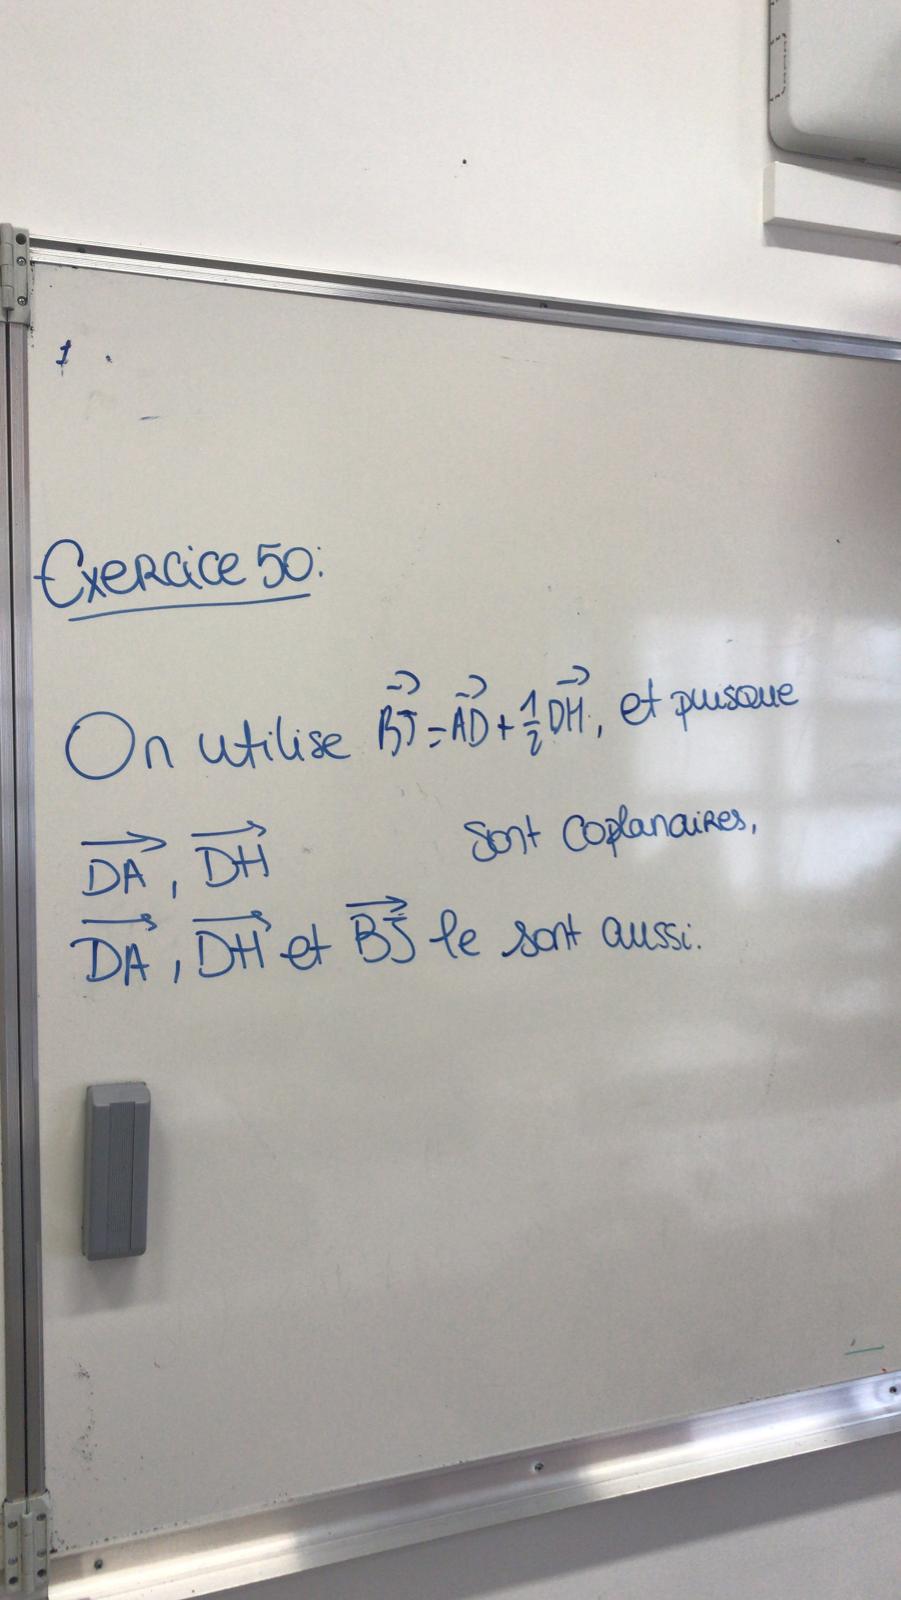 1
Exercice 50:
On utilise $\overrightarrow{BJ} = \overrightarrow{AD} + \frac{1}{2}\overrightarrow{DH}$, et puisque
$\overrightarrow{DA}$, $\overrightarrow{DH}$ sont coplanaires,
$\overrightarrow{DA}$, $\overrightarrow{DH}$ et $\overrightarrow{BJ}$ le sont aussi.